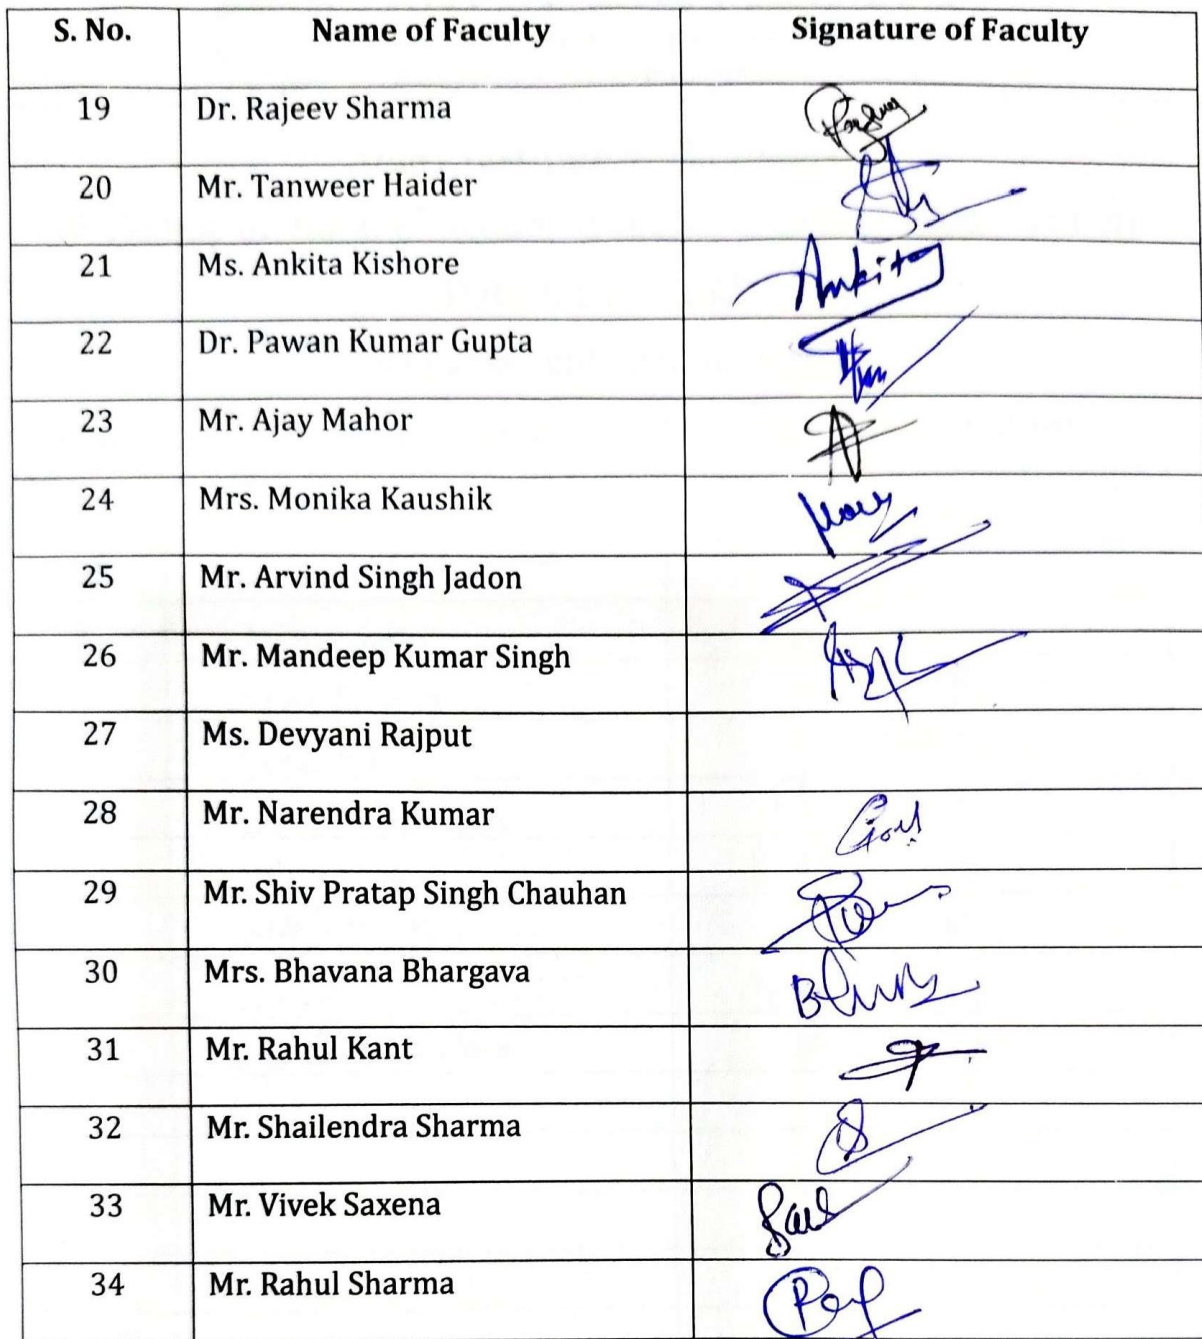 S. No. Name of Faculty Signature of Faculty
19 Dr. Rajeev Sharma
20 Mr. Tanweer Haider
21 Ms. Ankita Kishore Ankita
22 Dr. Pawan Kumar Gupta
23 Mr. Ajay Mahor
24 Mrs. Monika Kaushik
25 Mr. Arvind Singh Jadon
26 Mr. Mandeep Kumar Singh
27 Ms. Devyani Rajput
28 Mr. Narendra Kumar
29 Mr. Shiv Pratap Singh Chauhan
30 Mrs. Bhavana Bhargava
31 Mr. Rahul Kant
32 Mr. Shailendra Sharma
33 Mr. Vivek Saxena
34 Mr. Rahul Sharma